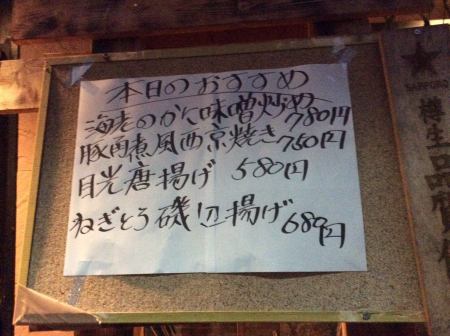 本日のおすすめ
海老のかに味噌炒め 780円
豚角煮風西京焼き 750円
目光唐揚げ 580円
ねぎとろ磯辺揚げ 680円
SAPPORO
樽生品質